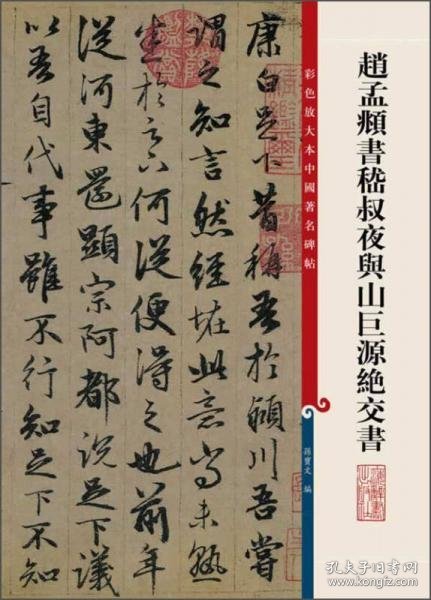 趙孟頫書嵇叔夜與山巨源絶交書
彩色放大本中國著名碑帖
孫寶文 編
康白足下昔稱吾於潁川吾嘗
謂之知言然經怪此意尚未熟
悉於足下何從便得之也前年
從河東還顯宗阿都説足下議
以吾自代事雖不行知足下不知
孔夫子旧书网
www.kongfz.com